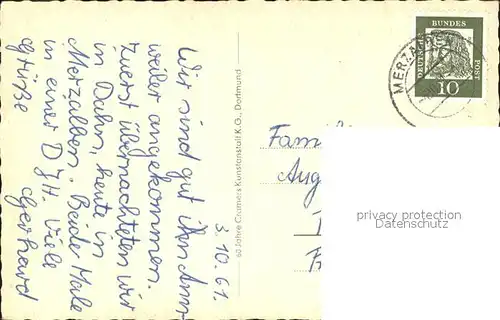 3.10.61.
Wir sind gut in Ann-
weiler angekommen.
Zuerst übernachteten wir
in Dahn, heute in
Merzalben. Beide Male
in einer DJH. Viele
Grüße Gerhard
60 Jahre Cramers Kunstanstalt K.G., Dortmund
DEUTSCHE BUNDES POST
10
MERZAL
Famil
Aug
privacy protection
Datenschutz